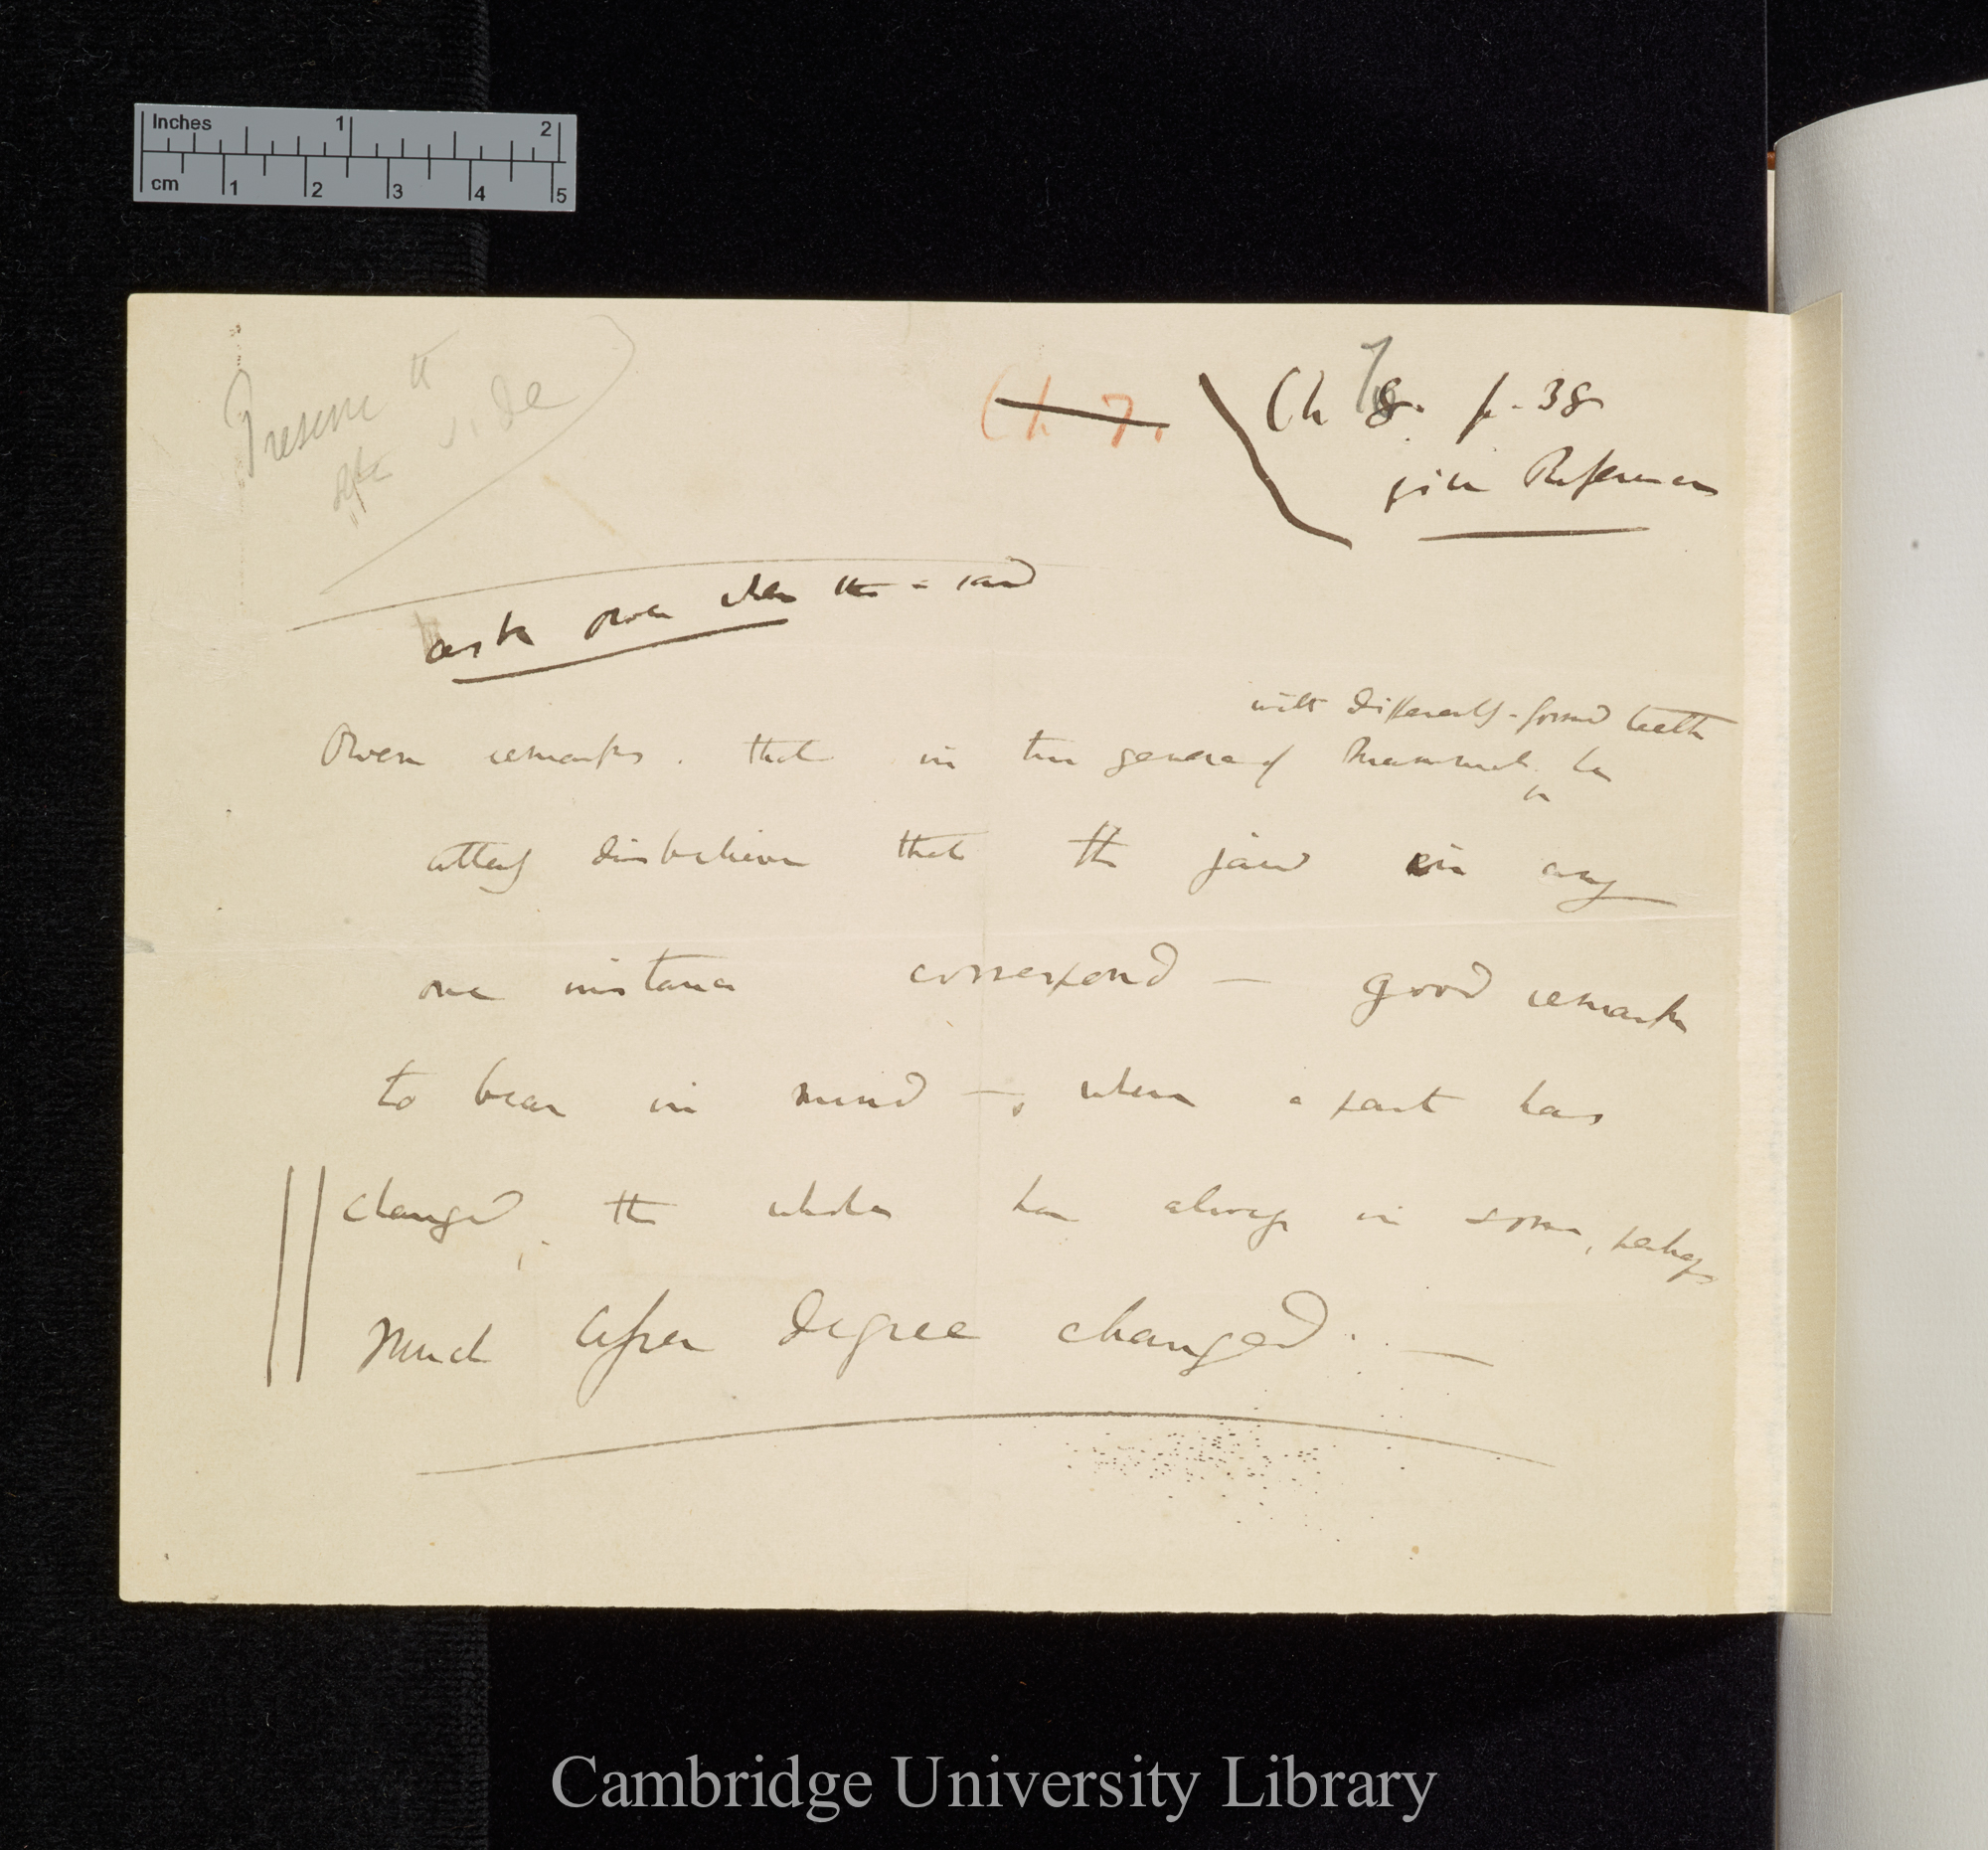 Inches 1 2
cm 1 2 3 4 5
Preserve this
side
Ch 7.
Ch 7 8. p. 38
give References
ask Owen where this is said
with differently-formed teeth
Owen remarks. that in two genera of Mammals he
utterly disbelieves that the jaw in any
one instance correspond — good remark
to bear in mind —, when a part has
changed, the whole has always in some, perhaps
much less degree changed. —
Cambridge University Library